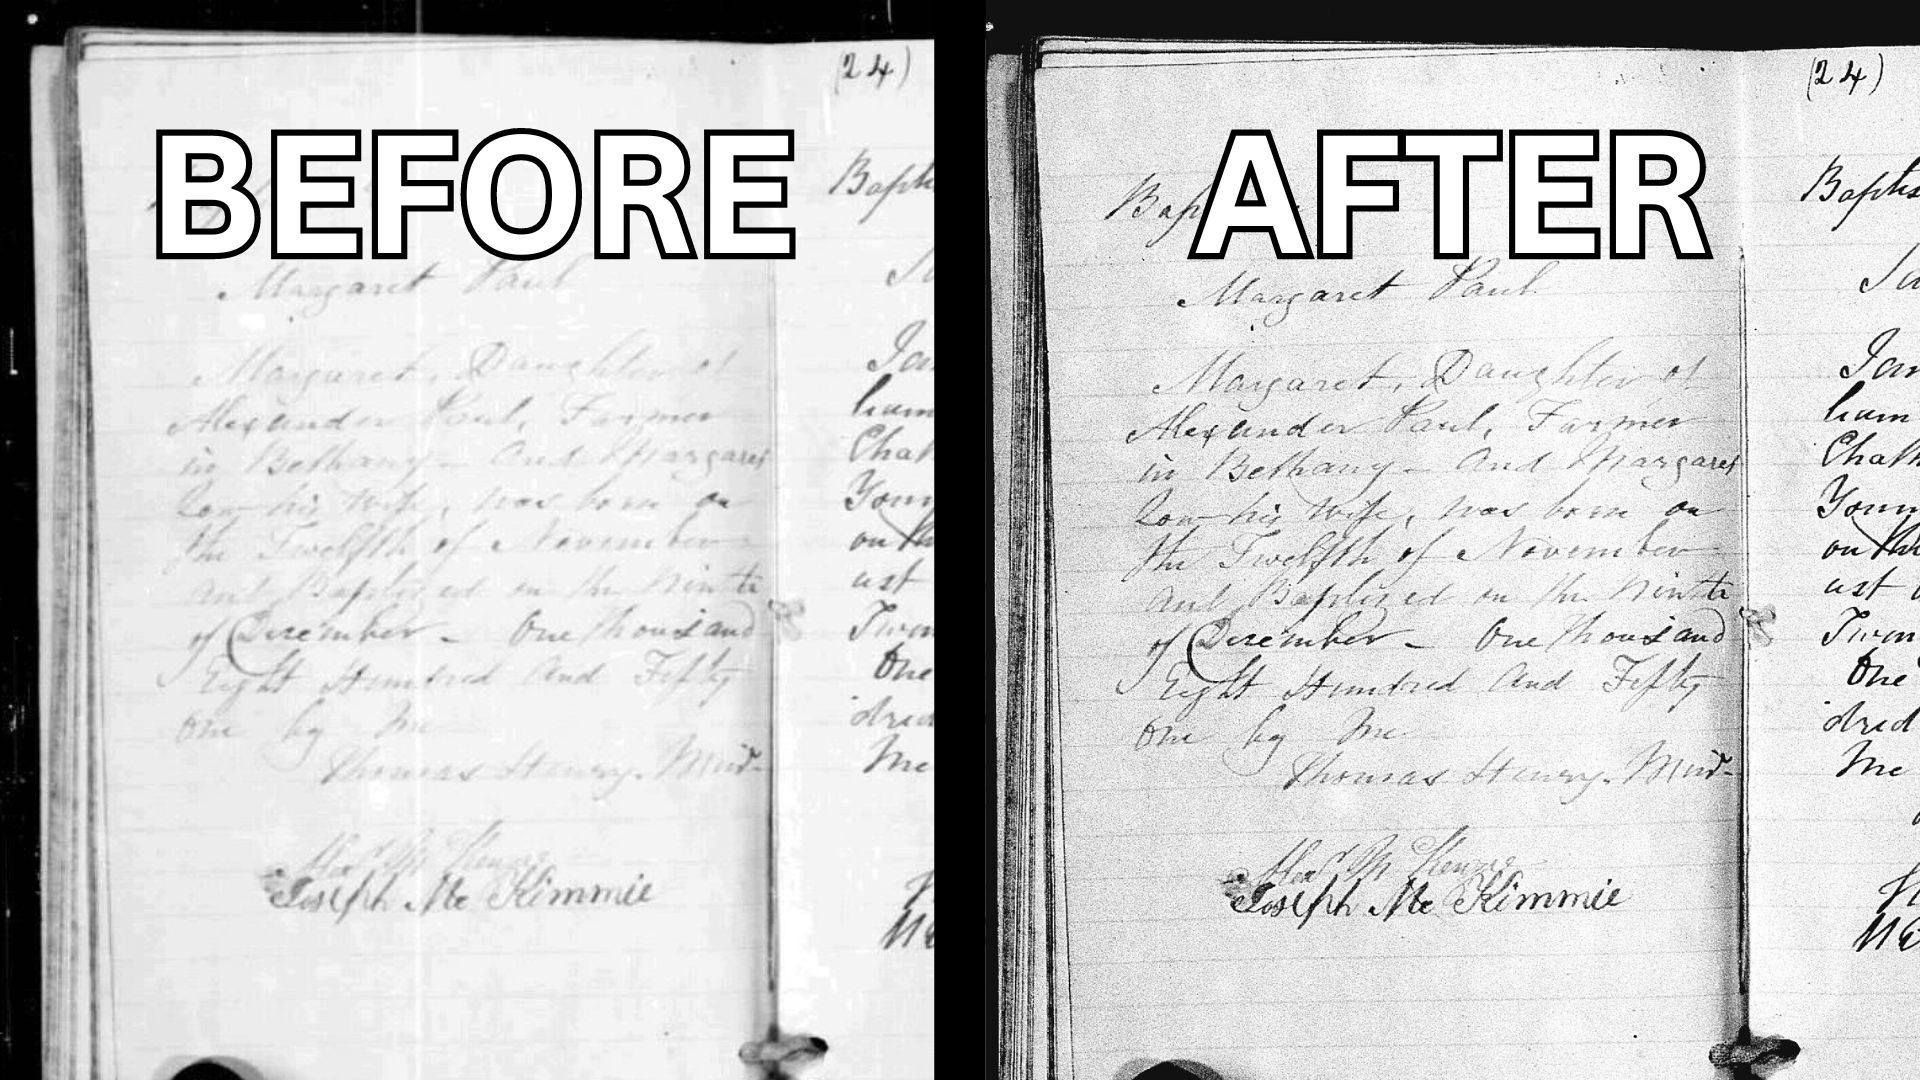 BEFORE
(24)
Bapt
Margaret Paul
Margaret, Daughter of
Alexander Paul, Farmer
in Bethany – And Margaret
Low his wife, was born on
the Twelfth of November
and Baptized on the Ninth
of December – One thousand
Eight Hundred And Fifty
One by Me
Thomas Henry. Mins-
Joseph Mc Kimmie
Jam
liam
Chat
Youn
on th
ust
Twen
One
dred
Me
AFTER
(24)
Bap
Margaret Paul
Margaret, Daughter of
Alexander Paul, Farmer
in Bethany – And Margaret
Low his wife, was born on
the Twelfth of November
and Baptized on the Ninth
of December – One thousand
Eight Hundred And Fifty
One by Me
Thomas Henry. Mins-
Alexr M Henry
Joseph Mc Kimmie
Baptis
Jam
liam
Chath
Youn
on the
ust
Twen
One
dred
Me